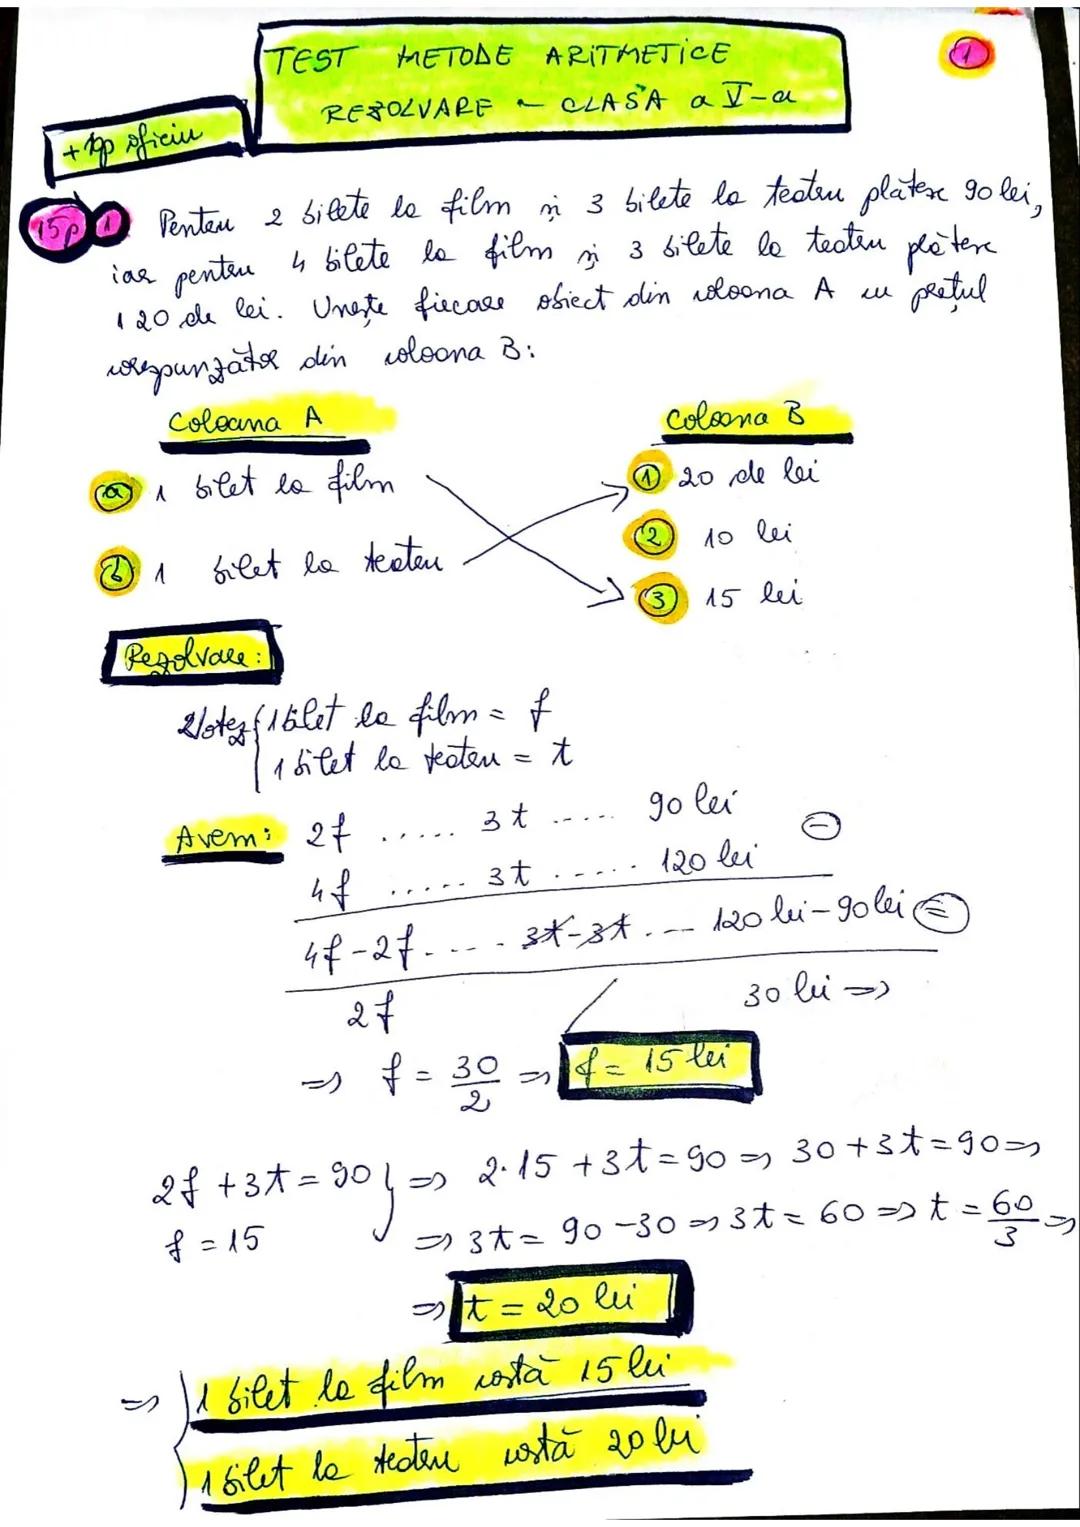 1
TEST METODE ARITMETICE
REZOLVARE - CLASA a V-a
+ 10p oficiu
15p 1 Pentru 2 bilete la film și 3 bilete la teatru plătesc 90 lei,
iar pentru 4 bilete la film și 3 bilete la teatru plătesc
120 de lei. Unește fiecare obiect din coloana A cu prețul
corespunzător din coloana B:
Coloana A Coloana B
a 1 bilet la film 1 20 de lei
2 10 lei
b 1 bilet la teatru
3 15 lei
Rezolvare:
Notez { 1 bilet la film = f
1 bilet la teatru = t
Avem: 2f ..... 3t ..... 90 lei -
4f ..... 3t ..... 120 lei
4f-2f.... 3t-3t.... 120 lei-90lei =
2f / 30 lei =>
=> f = 30/2 => f = 15 lei
2f +3t = 90 } => 2·15 +3t = 90 => 30+3t=90=>
f = 15 => 3t = 90-30 => 3t = 60 => t = 60/3 =>
=> t = 20 lei
=> { 1 bilet la film costă 15 lei
1 bilet la teatru costă 20 lei